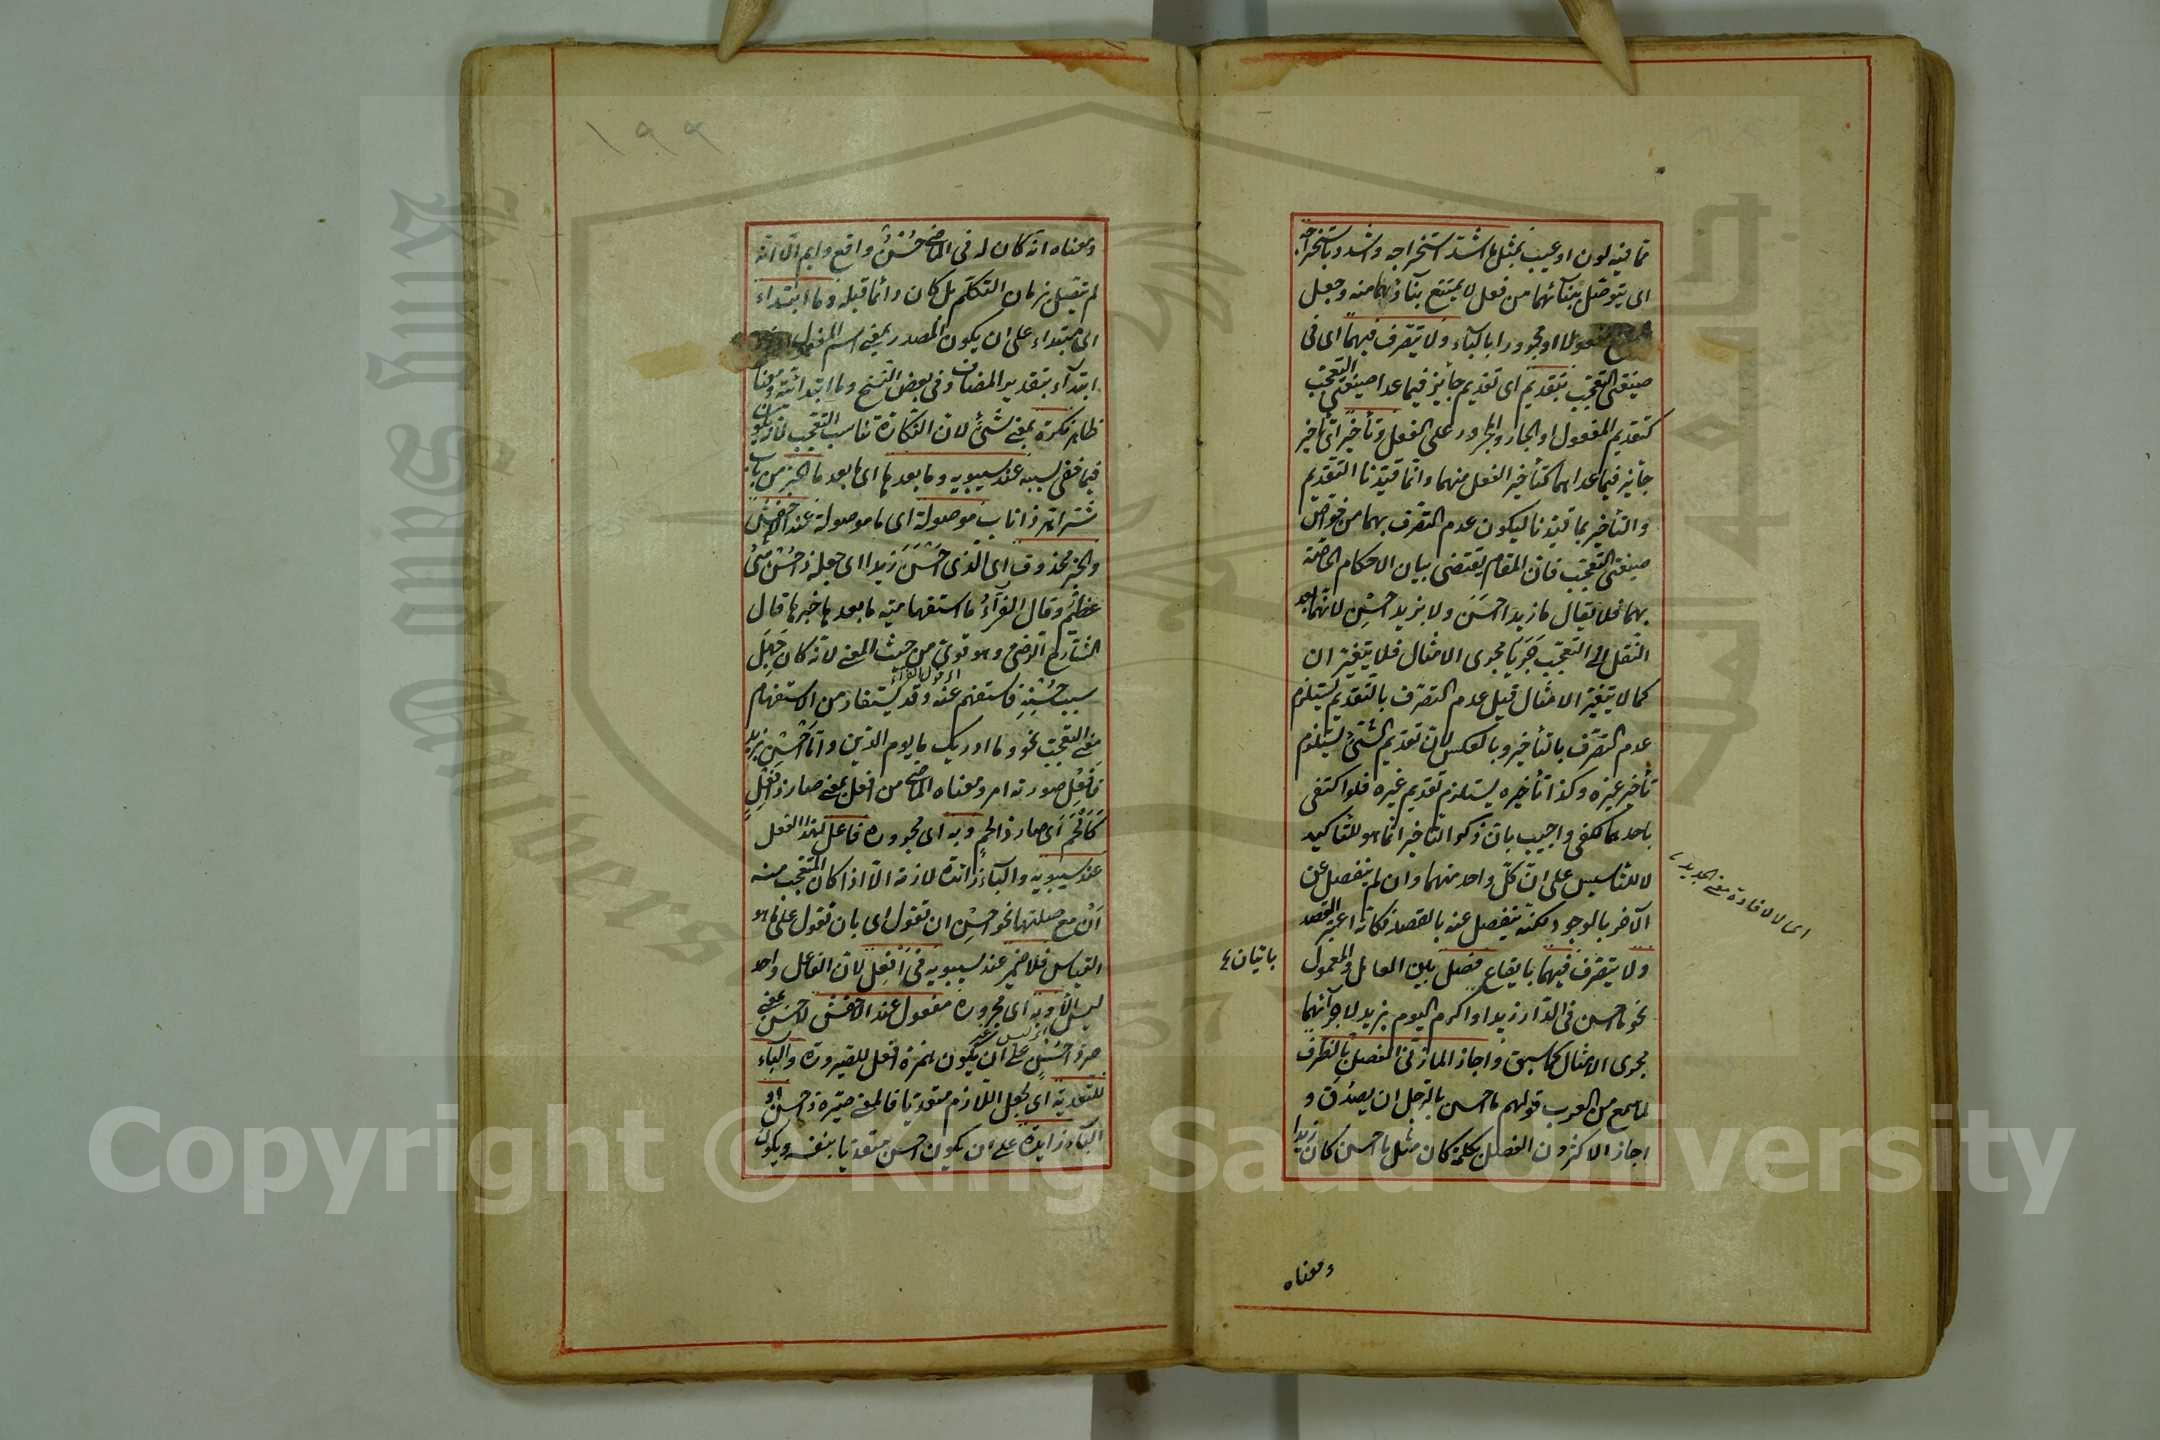 مما فيه لون او عيب بمثل ما اشد استخراجه واشدد باستخراجه
اى يتوصل ببنائهما من فعل لا يمتنع بناؤهما منه وجعل
مفعولا او مجرورا بالباء ولا يتصرف فيهما اى فى
صيغتى التعجب بتقديم اى تقديم جائز فيما عدا صيغتى التعجب
كتقديم المفعول او الجار والمجرور على الفعل وتأخير اى تأخير
جائز فيما عداهما كتأخير الفعل منهما وانما قيدنا التقديم
والتأخير بما قيدنا ليكون عدم التصرف بهما من خواص
صيغتى التعجب فان المقام يقتضى بيان الاحكام الخاصة
بهما فلا يقال ما زيدا احسن ولا بزيد احسن لانهما بعد
النقل الى التعجب جريا مجرى الامثال فلا يتغير ان
كما لا يتغير الامثال قيل عدم التصرف بالتقديم يستلزم
عدم التصرف بالتأخير وبالعكس لان تقديم الشئ يستلزم
تأخير غيره وكذا تأخيره يستلزم تقديم غيره فلو اكتفى
باحدهما لكفى واجيب بان ذكر التأخير انما هو للتأكيد
لا للتأسيس على ان كل واحد منهما وان لم ينفصل عن
الآخر بالوجود لكنه ينفصل عنه بالقصد فكانه اعتبر القصد
ولا يتصرف فيهما بايقاع فصل بين العامل والمعمول
نحو ما احسن فى الدار زيدا واكرم اليوم بزيد لاجرائهما
مجرى الامثال كما سبق واجاز المازنى الفصل بالظرف
لما سمع من العرب قولهم ما احسن بالرجل ان يصدق و
اجاز الاكثرون الفصل بكلمة كان مثل ما احسن كان زيدا
اى لا لافادة معنى الجديد
ومعناه
١٩٩
ومعناه انه كان له فى الماضى حسن واقع دائم الا انه
لم يتصل بزمان التكلم بل كان دائما قبله وما ابتداء
اى مبتداء على ان يكون المصدر بمعنى اسم المفعول
ابتداء بتقدير المضاف وفى بعض النسخ وما ابتدائية
نكرة بمعنى شئ لان النكارة تناسب التعجب
فيما خفى سببه عند سيبويه وما بعدها اى ما بعد ما الخبر من باب
شر اهر ذا ناب موصولة اى ما موصولة عند الاخفش
والخبر محذوف اى الذى احسن زيدا اى جعله ذا حسن شئ
عظيم وقال الفراء ما استفهامية ما بعدها خبرها قال
الشارح الرضى وهو قوى من حيث المعنى لانه كان جهل
سبب حسنه فاستفهم عنه وقد يستفاد من الاستفهام
معنى التعجب نحو وما ادريك ما يوم الدين واما احسن بزيد
فافعل صورته امر ومعناه الماضى من افعل بمعنى صار ذا فعل
كالحم اى صار ذا لحم وبه اى مجروره فاعل لهذا الفعل
عند سيبويه والباء زائدة لازمة الا اذا كان المتعجب منه
ان مع صلتها نحو احسن ان تقول اى بان تقول على ما هو
القياس فلا ضمير عند سيبويه فى افعل لان الفاعل واحد
ليس الا وبه اى مجروره مفعول عند الاخفش لاحسن بمعنى
صر ذا حسن على ان يكون همزة افعل للصيرورة والباء
للتعدية اى لجعل اللازم متعديا فالمعنى صيره ذا حسن او
الباء زائدة على ان يكون احسن متعديا بنفسه ويكون
Copyright © King Saud University
King Saud University
1957